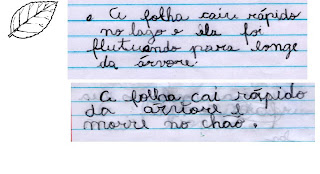 A folha caiu rápido
no lago e ela foi
flutuando para longe
da árvore.
A folha cai rápido
da árvore e
morre no chão.